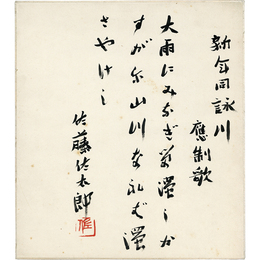 新年同詠川
應制歌
大雨にみなぎる濁しか
すが尓山川奈れば濁
さやけし
佐藤佐太郎